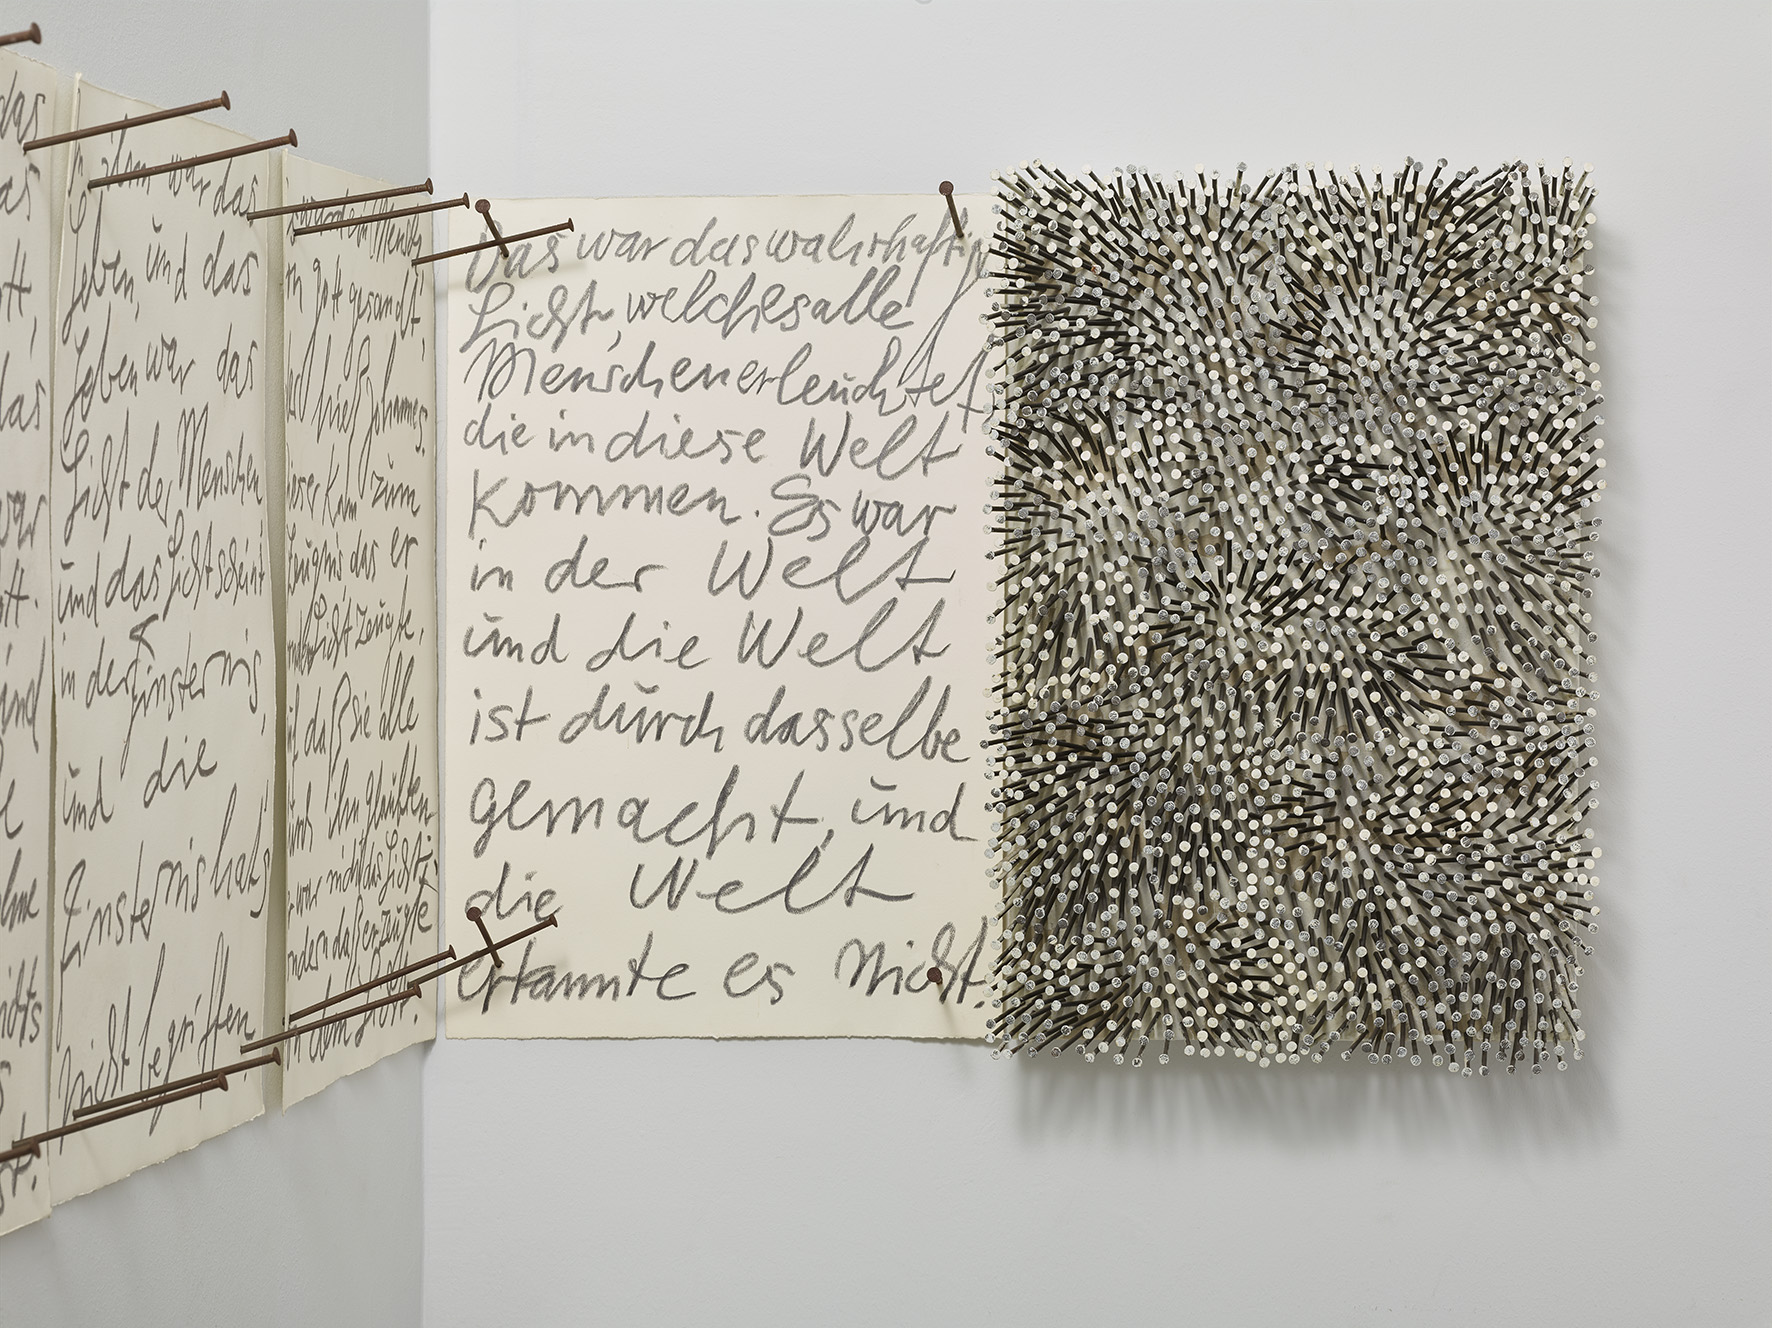 das
as
das
war
ohne
ihm war das
Leben, und das
Leben war das
Licht der Menschen
und das Licht scheint
in der Finsternis,
und die
Finsternis hat's
nicht begriffen.
Mensch
von Gott gesandt,
hieß Johannes.
Dieser kam zum
Zeugnis das er
Licht zeugte,
daß sie alle
durch ihn glaubten
war nicht das Licht
sondern daß er zeugte
Das war das wahrhaftige
Licht, welches alle
Menschen erleuchtet,
die in diese Welt
kommen. Es war
in der Welt
und die Welt
ist durch dasselbe
gemacht, und
die Welt
erkannte es nicht.